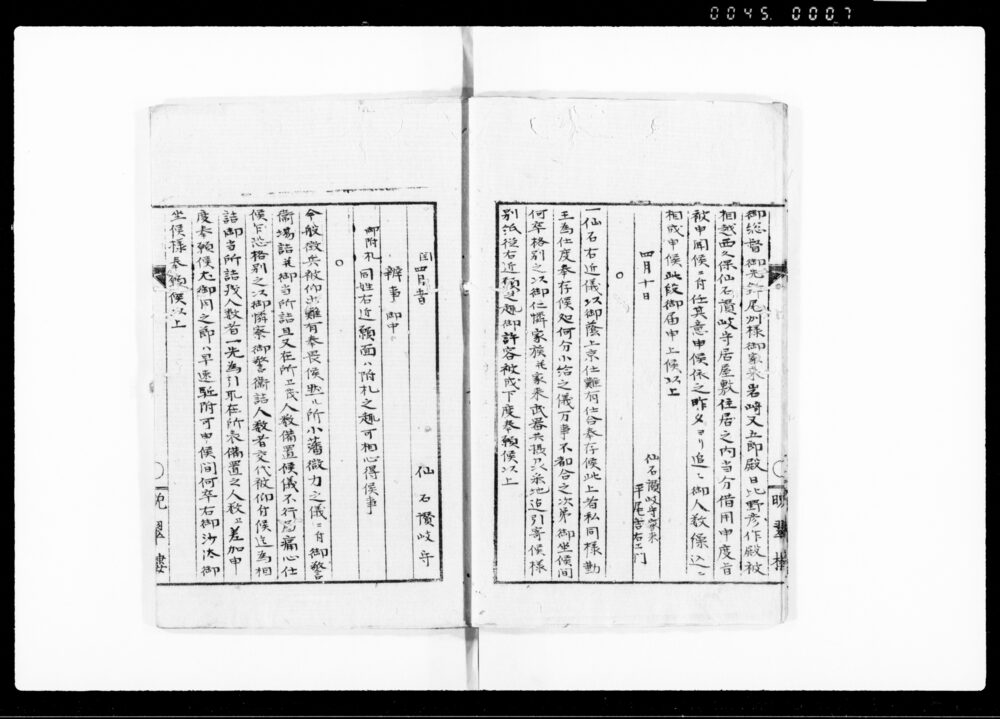 0045. 0007
御総督御先鋒尾州様御家来岩崎又五郎殿日比野彦作殿被
相越西久保仙石讃岐守居屋敷住居之内当分借用申度旨
被申聞候ニ付任其意申候依之昨夕ヨリ追々御人数操込ニ
相成申候此段御届申上候以上
四月十日
仙石讃岐守家来
平尾吉右エ門
○
一仙石右近儀以御蔭上京仕難有仕合奉存候此上者私同様勤
王為仕度奉存候処何分小給之儀万事不都合之次第御坐候間
何卒格別之以御仁憐家族並家来武器共摂ノ采地迄引寄候様
別紙後右近願之趣御許容被成下度奉願候以上
閏四月
仙石讃岐守
辨事御中
御附札 同姓右近願面ハ附札之趣可相心得候事
○
今般徴兵被仰出難有奉畏候然ル所小藩微力之儀ニ付御警
衛場詰並御当所詰且又在所エ茂人数備置候儀不行届痛心仕
候付恐格別之以御憐察御警衛詰人数者交代被仰付候迄為相
詰御当所詰残人数者一先為引取在所表備置之人数エ差加申
度奉願候尤御用之節ハ早速馳附可申候間何卒右御沙汰御
坐候様奉願候以上